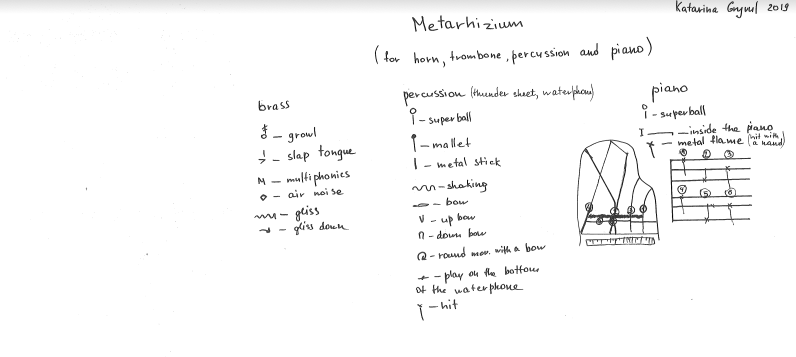 Katarina Gryvul 2019
Metarhizium
(for horn, trombone, percussion and piano)
brass
growl
slap tongue
M - multiphonics
air noise
gliss
gliss down
percussion (thunder sheet, waterphon)
- superball
- mallet
- metal stick
- shaking
- bow
V - up bow
- down bow
- round mov. with a bow
- play on the bottom
of the waterphone
- hit
piano
- superball
- inside the piano
- metal flame (hit with
a hand)
② ③
④ ⑤ ⑥